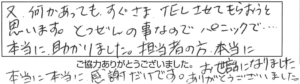 又、何かあっても、すぐさま TELさせてもらおうと
思います。とつぜんの事なので パニックで・・・
本当に助かりました。担当者の方、本当に
ご協力ありがとうございました。 お世話になりました
本当に本当に感謝だけです。ありがとうございました